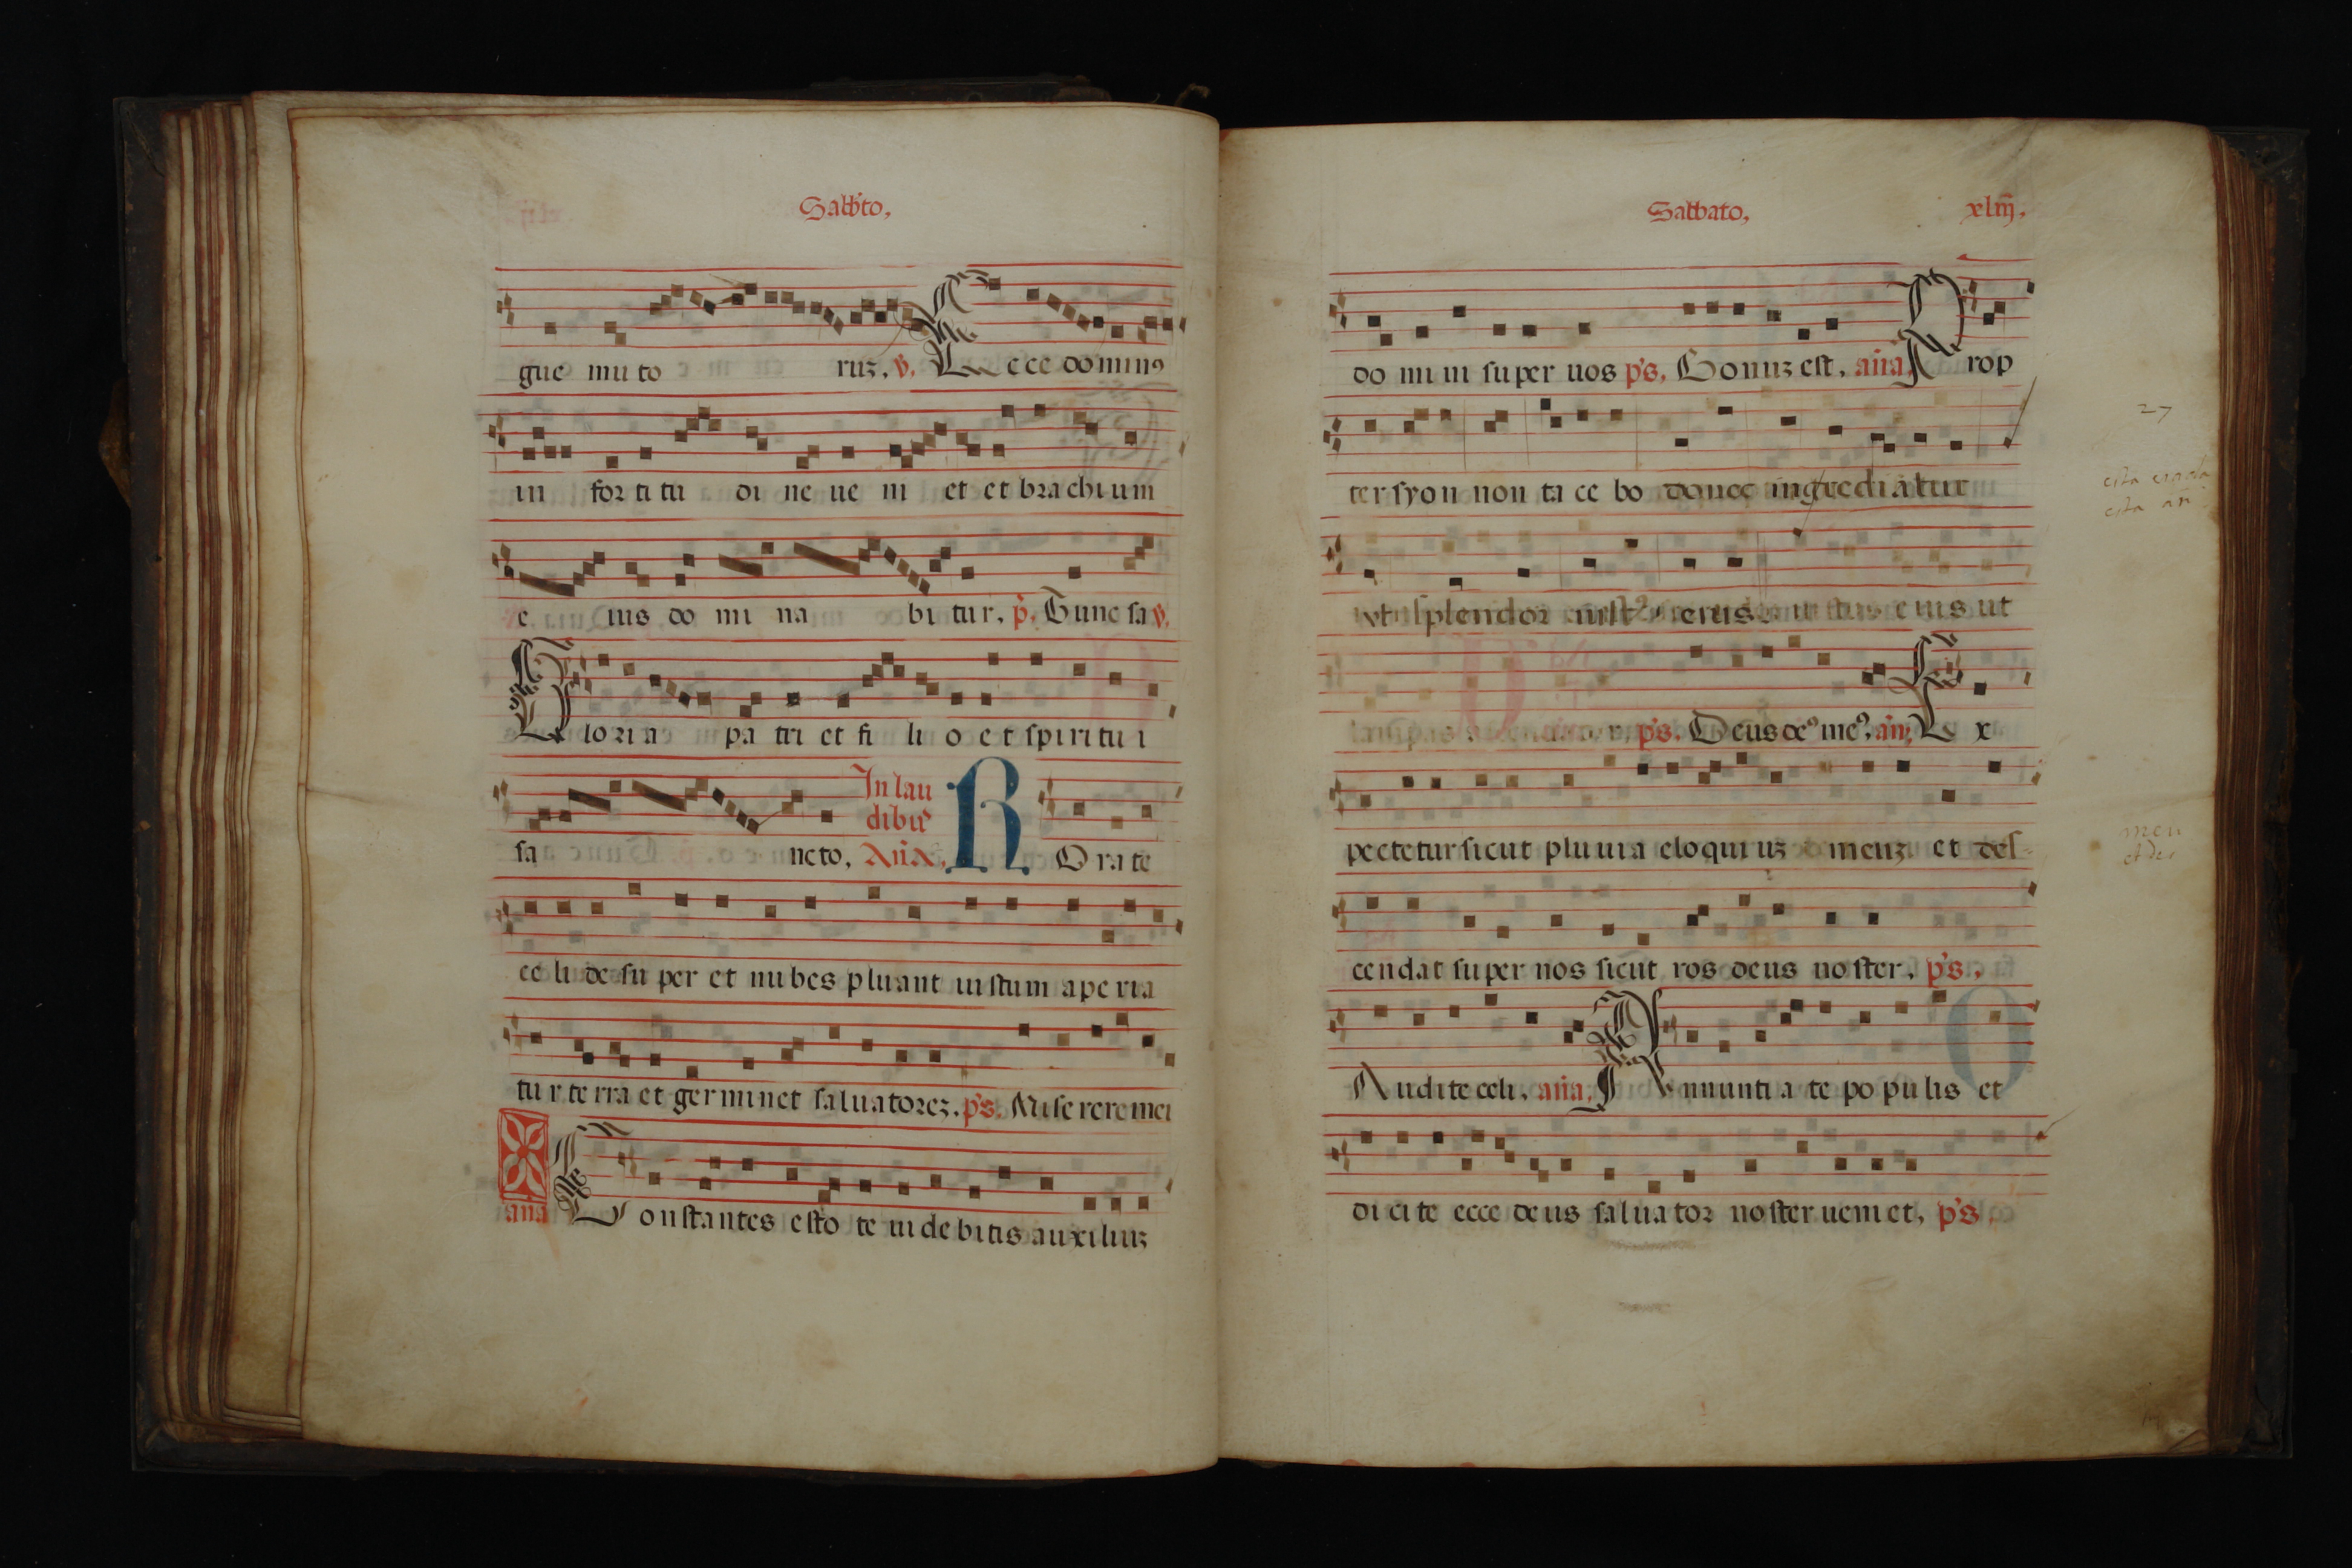 Sabb̄to,
gue mu to ruȝ, v. Ecce dominꝰ
in for ti tu di ne ue ni et et brachium
e ius do mi na bi tur, p̄. Tunc sa v.
Gloria pa tri et fi li o et spiritu i
sa ncto, In lau dibꝰ Añā, R Orate
celi de su per et nubes pluant iustum aperia
tur terra et germinet saluatoreȝ. ps. Miserere mei
añā Constantes esto te uidebitis auxiliuȝ
Sabbato, xliij.
do mi ni super uos ps. Bonuȝ est, añā, Prop
ter syon non ta ce bo donec ingrediatur
ut splendor iustꝰ eius eius ut
lampas ps. Deus deꝰ meꝰ, añ, Ex
pectetur sicut pluuia eloquiuȝ meuȝ et des
cendat super nos sicut ros deus noster, ps.
Audite celi, añā, Annuntia te populis et
dicite ecce deus saluator noster ueniet, ps.
27
esta
esta añ
men
et des